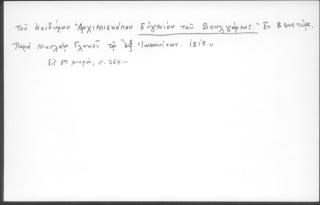 Τοῦ Ἀοιδίμου Ἀρχιεπισκόπου Εὐγενίου τοῦ Βουλγάρεως." Ἐν Βενετίᾳ,
Παρὰ Νικολάῳ Γλυκεῖ τῷ ἐξ Ἰωαννίνων. 1817."
Εἰς 8ον μικρόν, σ. 264.—